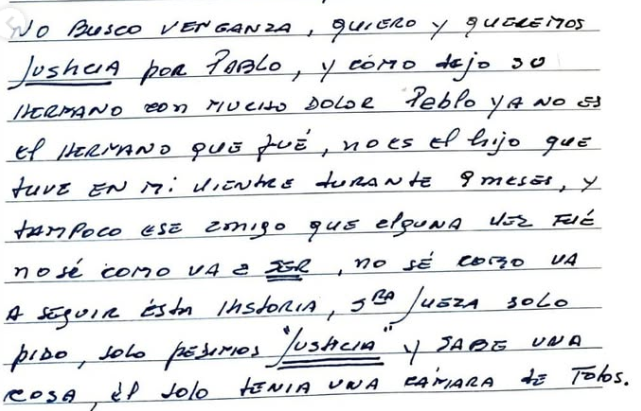 NO BUSCO VENGANZA, QUIERO y QUEREMOS
JUSTICIA por PABLO, y cómo dijo su
HERMANO con MUCHO DOLOR Pablo YA NO ES
el HERMANO QUE fUÉ, no es el hijo que
tuve EN Mi VIENTRE DURANTE 9 meses, y
tampoco ese amigo que alguna vez FUÉ
no sé como VA a SER, no SÉ como VA
A SEGUIR ésta historia, SRA JUEZA solo
pido, solo pedimos "JUSTICIA" y SABE UNA
COSA, él solo tenia UNA CÁMARA de Fotos.